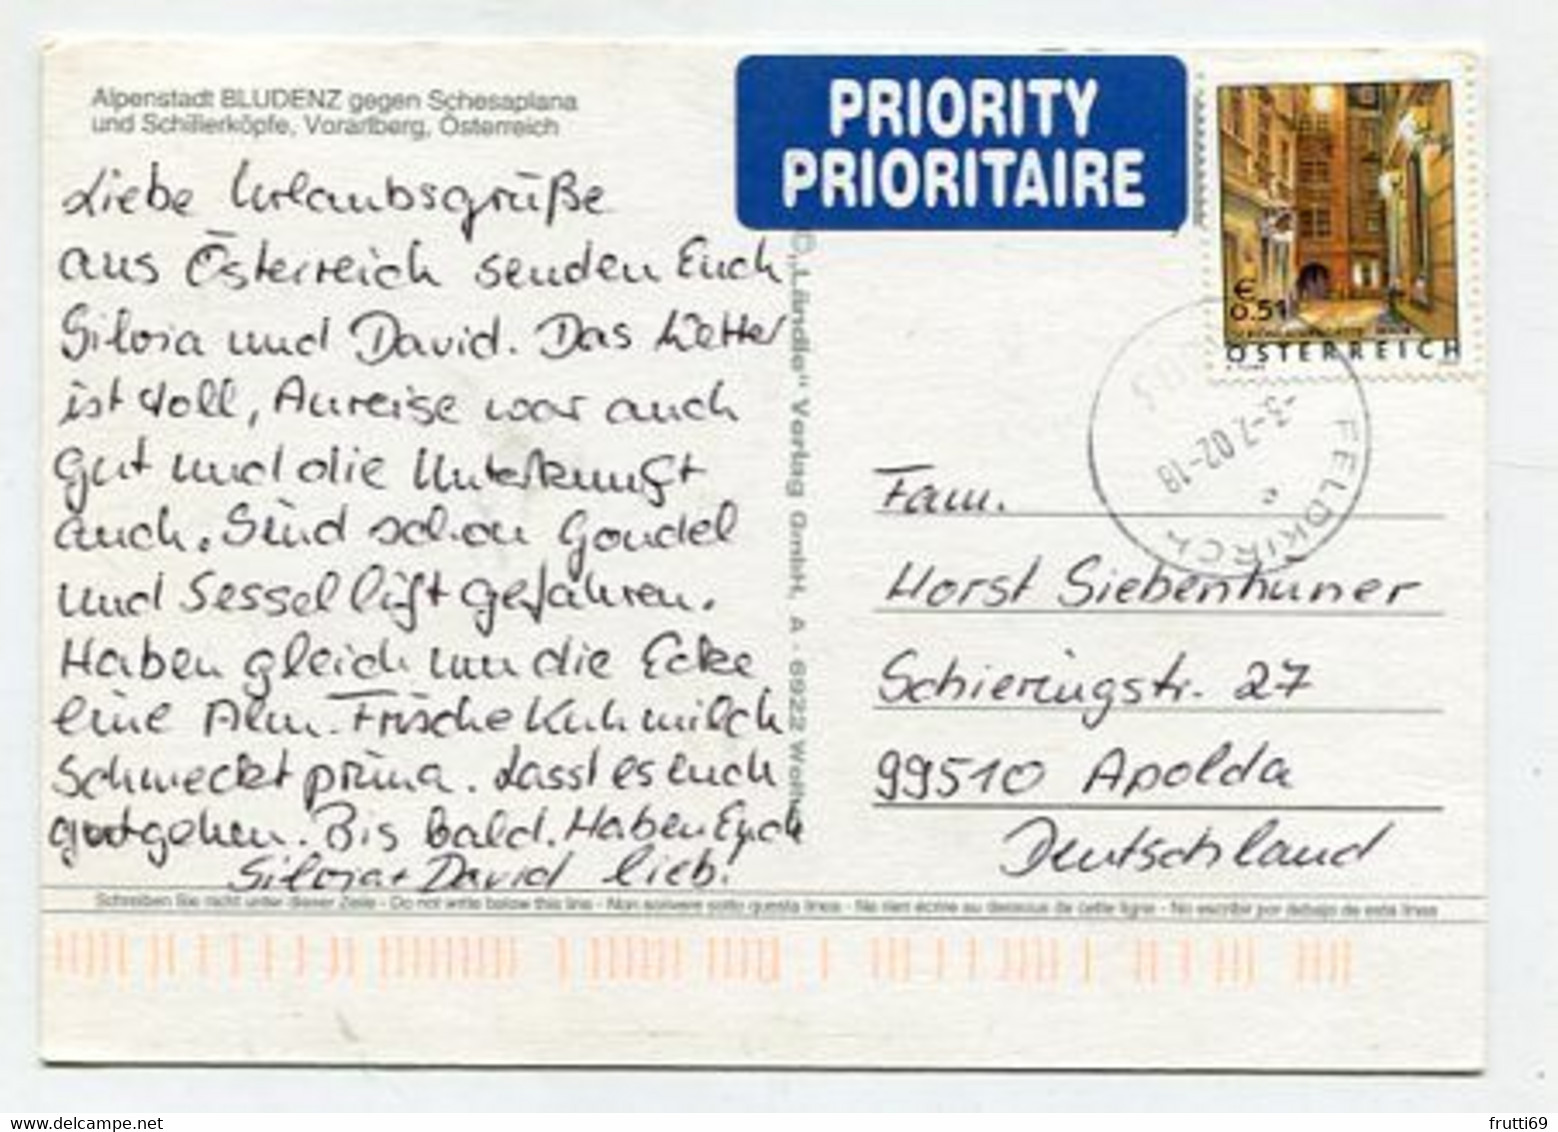 Alpenstadt BLUDENZ gegen Schesaplana
und Schillerköpfe, Vorarlberg, Österreich
PRIORITY
PRIORITAIRE
€
0.51
ÖSTERREICH
-3.-7.02-18
FELDKIRCH
Liebe Urlaubsgrüße
aus Österreich senden Euch
Silvia und David. Das Wetter
ist toll, Anreise war auch
gut und die Unterkunft
auch. Sind schon Gondel
und Sessellift gefahren.
Haben gleich um die Ecke
eine Alm. Frische Kuhmilch
Schmeckt prima. Lasst es euch
gut gehen. Bis bald. Haben Euch
Silvia + David lieb!
© "Ländle" Verlag GmbH, A - 6922 Wolfurt
Fam.
Horst Siebenhüner
Schieringstr. 27
99510 Apolda
Deutschland
Schreiben Sie nicht unter dieser Zeile - Do not write below this line - Non scrivere sotto questa linea - Ne rien écrire au dessous de cette ligne - No escribir por debajo de esta linea
frutti69